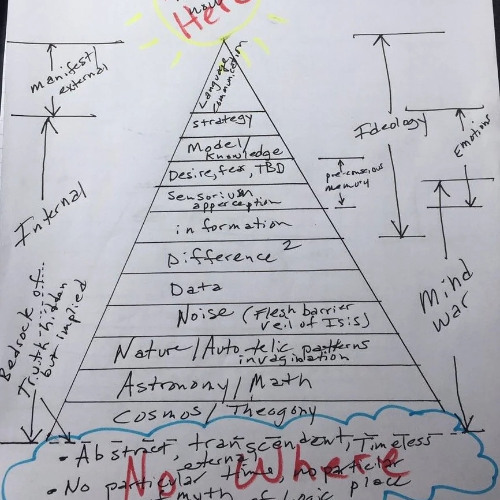 now
Here
Language
communication
strategy
Model/
Knowledge
Desire, fear, TBD
Sensorium
apperception
information
Difference 2
Data
Noise (Flesh barrier
veil of Isis)
Nature/Auto telic patterns
invagination
Astronomy/Math
Cosmos/Theogony
manifest/
external
Internal
Bedrock of....
Truth-hidden
but implied
Ideology
Emotions
pre-conscious
memory
Mind
war
• Abstract, transcendent, Timeless
external,
• No particular time, no particular
myth of logic place
No Where